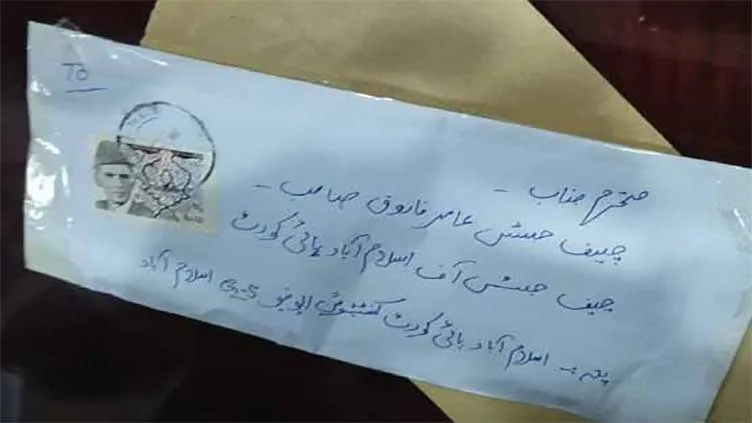 To
محترم جناب -
چیف جسٹس عامر فاروق صاحب -
چیف جسٹس آف اسلام آباد ہائی کورٹ
پتہ :- اسلام آباد ہائی کورٹ کنسٹیٹیوشن ایونیو G-5 اسلام آباد